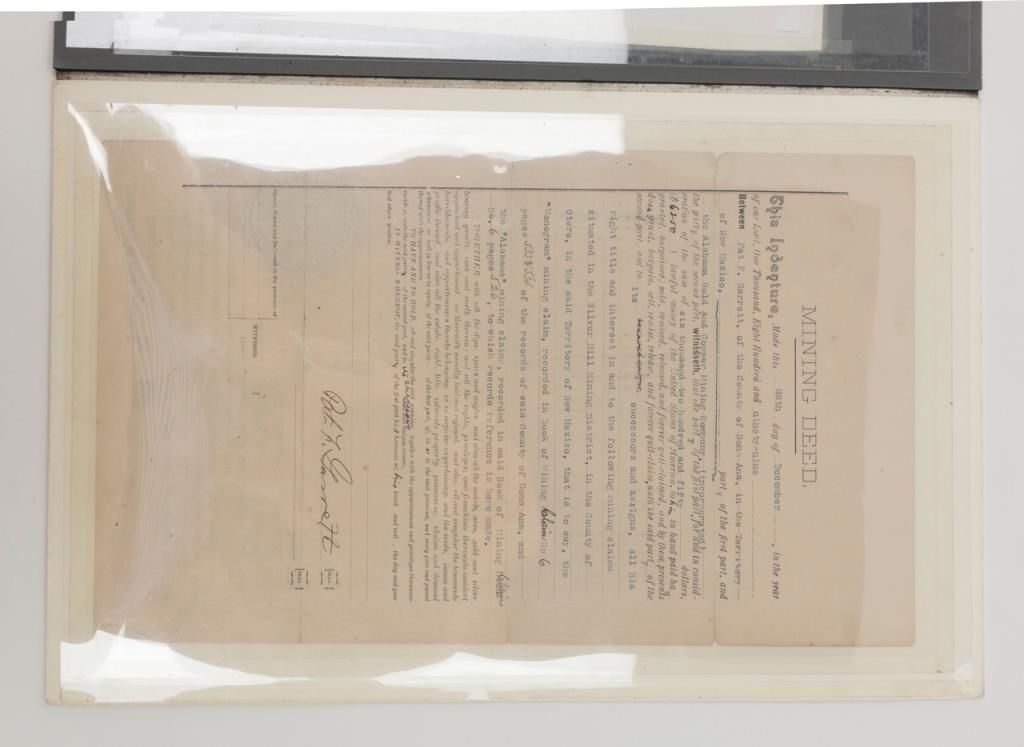 MINING DEED.
This Indenture, Made this 28th day of December, in the year
of our Lord, One Thousand, Eight Hundred and ninety-nine
Between Pat F. Garrett, of the County of Don- Ana, in the Territory
of New Mexico, party of the first part, and
the Alabama Gold and Copper Mining Company, (incorporated),
the party of the second part, witnesseth, that the party of the first part, for and in consid-
eration of the sum of six thousand two hundred and fifty dollars,
($ 6250 ) lawful money of the United States of America, to in hand paid has
granted, bargained, sold, remised, released, and forever quit-claimed, and by these presents
does grant, bargain, sell, remise, release, and forever quit-claim, unto the said party, of the
second part, and to its successors and assigns, all his
right title and interest in and to the following mining claims
situated in the Silver Hill Mining District, in the County of
Otero, in the said Territory of New Mexico, that is to say, the
"Monogram" mining claim, recorded in Book of Mining Claims No 6
pages of the records of said County of Dona Ana, and
the "Alabama" mining claim, recorded in said Book of Mining Claims
No. 6 pages 526, to which records reference is here made.
TOGETHER with all the dips, spurs and angles and also all the metals, ores, gold and silver
bearing quartz, rock and earth therein; and all the rights, privileges, and franchises thereunto incident
appendant and appurtenant or therewith usually had and enjoyed and also, all and singular the tenements
hereditaments and appurtenances thereto belonging or in anywise appertaining, and the rents, issues and
profits thereof, and also all the estate, right, title, interest, property, possession, claim and demand
whatsoever, as well in law as in equity, of the said party of the first part, of, in or to the said premises, and every part and parcel
thereof with the appurtenances
TO HAVE AND TO HOLD, all and singular the said together with the appurtenances and privileges thereunto
incident, unto the said party of the second part, and to its
IN WITNESS WHEREOF, the said party of the first part has hereunto set his hand and seal, the day and year
first above written.
Signed, Sealed and Delivered in the presence of
Pat F. Garrett [SEAL]
[SEAL]
WITNESSES.